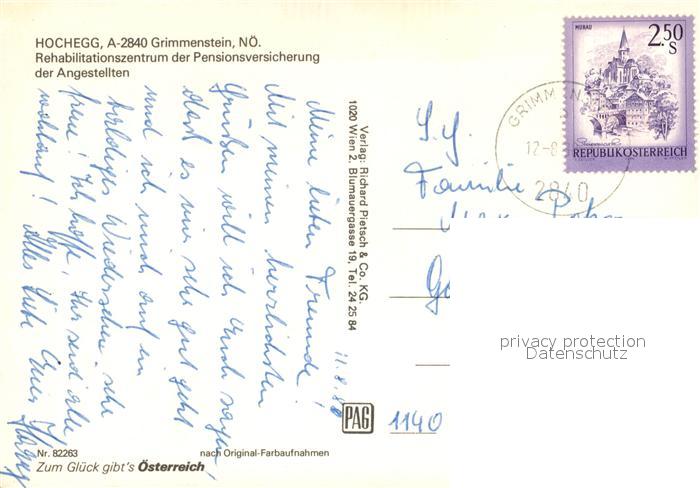 HOCHEGG, A-2840 Grimmenstein, NÖ.
Rehabilitationszentrum der Pensionsversicherung
der Angestellten
Meine lieben Freunde!
Mit meinen herzlichsten
Grüßen will ich Euch sagen,
daß es mir sehr gut geht
und ich mich auf ein
baldiges Wiedersehen sehr
freue! Ich hoffe, Ihr seid alle
wohlauf! Alles Liebe Euer
11.8.
Verlag: Richard Pietsch & Co. KG.
1020 Wien 2, Blumauergasse 19, Tel. 24 25 84
PAG
Nr. 82263
nach Original-Farbaufnahmen
Zum Glück gibt's Österreich
MURAU
2.50
S
Steiermark
REPUBLIK ÖSTERREICH
GRIMMEN
12-8
2840
Familie
1140
privacy protection
Datenschutz